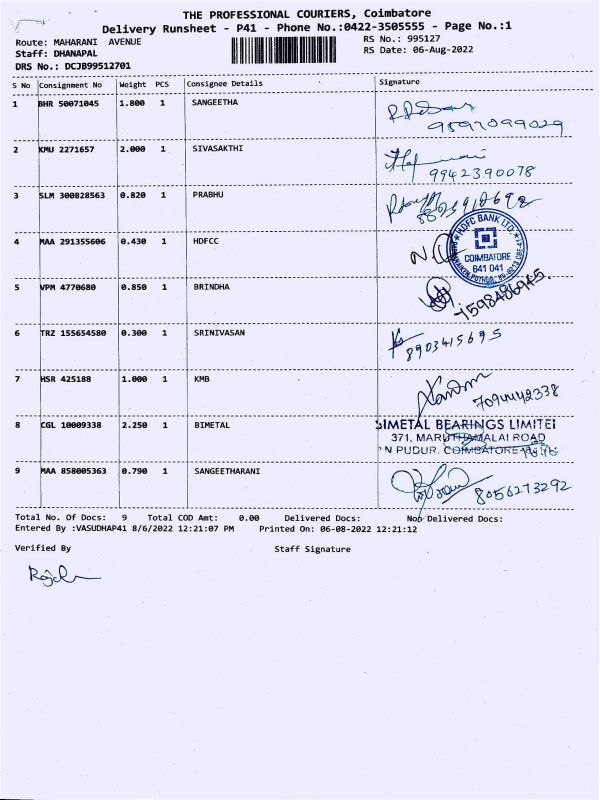 THE PROFESSIONAL COURIERS, Coimbatore
Delivery Runsheet - P41 - Phone No.:0422-3505555 - Page No.:1
Route: MAHARANI AVENUE RS No.: 995127
Staff: DHANAPAL RS Date: 06-Aug-2022
DRS No.: DCJB99512701
S No Consignment No Weight PCS Consignee Details Signature
1 BHR 50071045 1.800 1 SANGEETHA
2 KMU 2271657 2.000 1 SIVASAKTHI
9942390078
3 SLM 300828563 0.820 1 PRABHU
HDFC BANK LTD.
4 MAA 291355606 0.430 1 HDFCC
COIMBATORE
641 041
5 VPM 4770680 0.850 1 BRINDHA
7598486945.
6 TRZ 155654580 0.300 1 SRINIVASAN
8903415695
7 HSR 425188 1.000 1 KMB
7094442338
8 CGL 10009338 2.250 1 BIMETAL
IMETAL BEARINGS LIMITE
371, MARUTHAMALAI ROAD
N PUDUR. COIMBATORE
9 MAA 858005363 0.790 1 SANGEETHARANI
8056273292
Total No. Of Docs: 9 Total COD Amt: 0.00 Delivered Docs: Non Delivered Docs:
Entered By :VASUDHAP41 8/6/2022 12:21:07 PM Printed On: 06-08-2022 12:21:12
Verified By Staff Signature